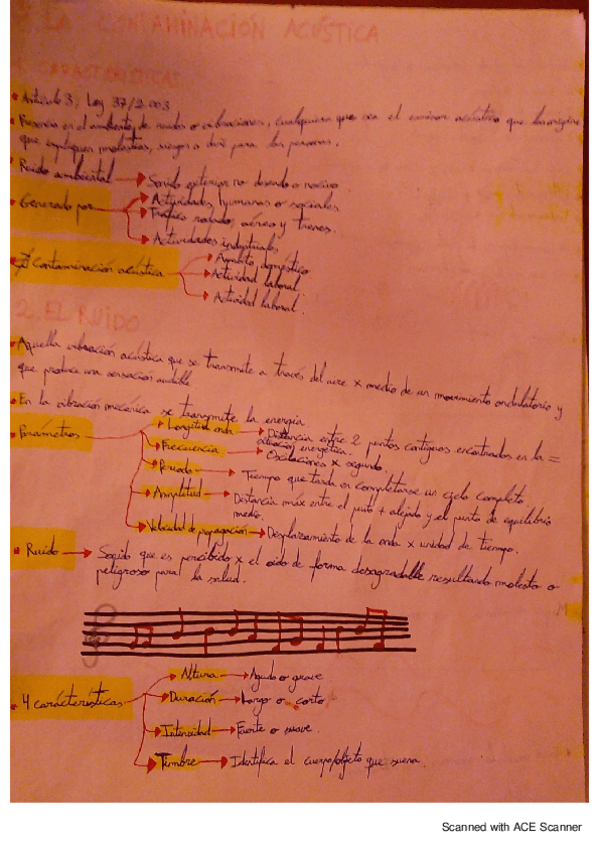 LA CONTAMINACIÓN ACÚSTICA
1. CARACTERÍSTICAS
• Artículo 3, Ley 37/2.003
• Presencia en el ambiente, de ruidos o vibraciones, cualquiera que sea el emisor acústico que los origine
que impliquen molestias, riesgo o daño para las personas.
• Ruido ambiental → Sonido exterior no deseado o nocivo.
• Generado por → Actividades humanas o sociales.
→ Tráfico rodado, aéreo y trenes.
→ Actividades industriales
• ≠ Contaminación acústica → Ámbito doméstico
→ Actividad laboral
→ Actividad laboral.
2. EL RUIDO
• Aquella vibración acústica que se transmite a través del aire x medio de un movimiento ondulatorio y
que produce una sensación audible.
• En la vibración mecánica se transmite la energía
• Parámetros → Longitud onda → Distancia entre 2 puntos contiguos encontrados en la =
situación energética.
→ Frecuencia → Oscilaciones x segundo.
→ Periodo → Tiempo que tarda en completarse un ciclo completo
→ Amplitud → Distancia máx entre el punto + alejado y el punto de equilibrio
medio.
→ Velocidad de propagación → Desplazamiento de la onda x unidad de tiempo.
• Ruido → Sonido que es percibido x el oido de forma desagradable resultando molesto o
peligroso para la salud.
• 4 carácterísticas → Altura → Agudo o grave
→ Duración → Largo o corto
→ Intensidad → Fuerte o suave.
→ Timbre → Identifica el cuerpo/objeto que suena.
Scanned with ACE Scanner